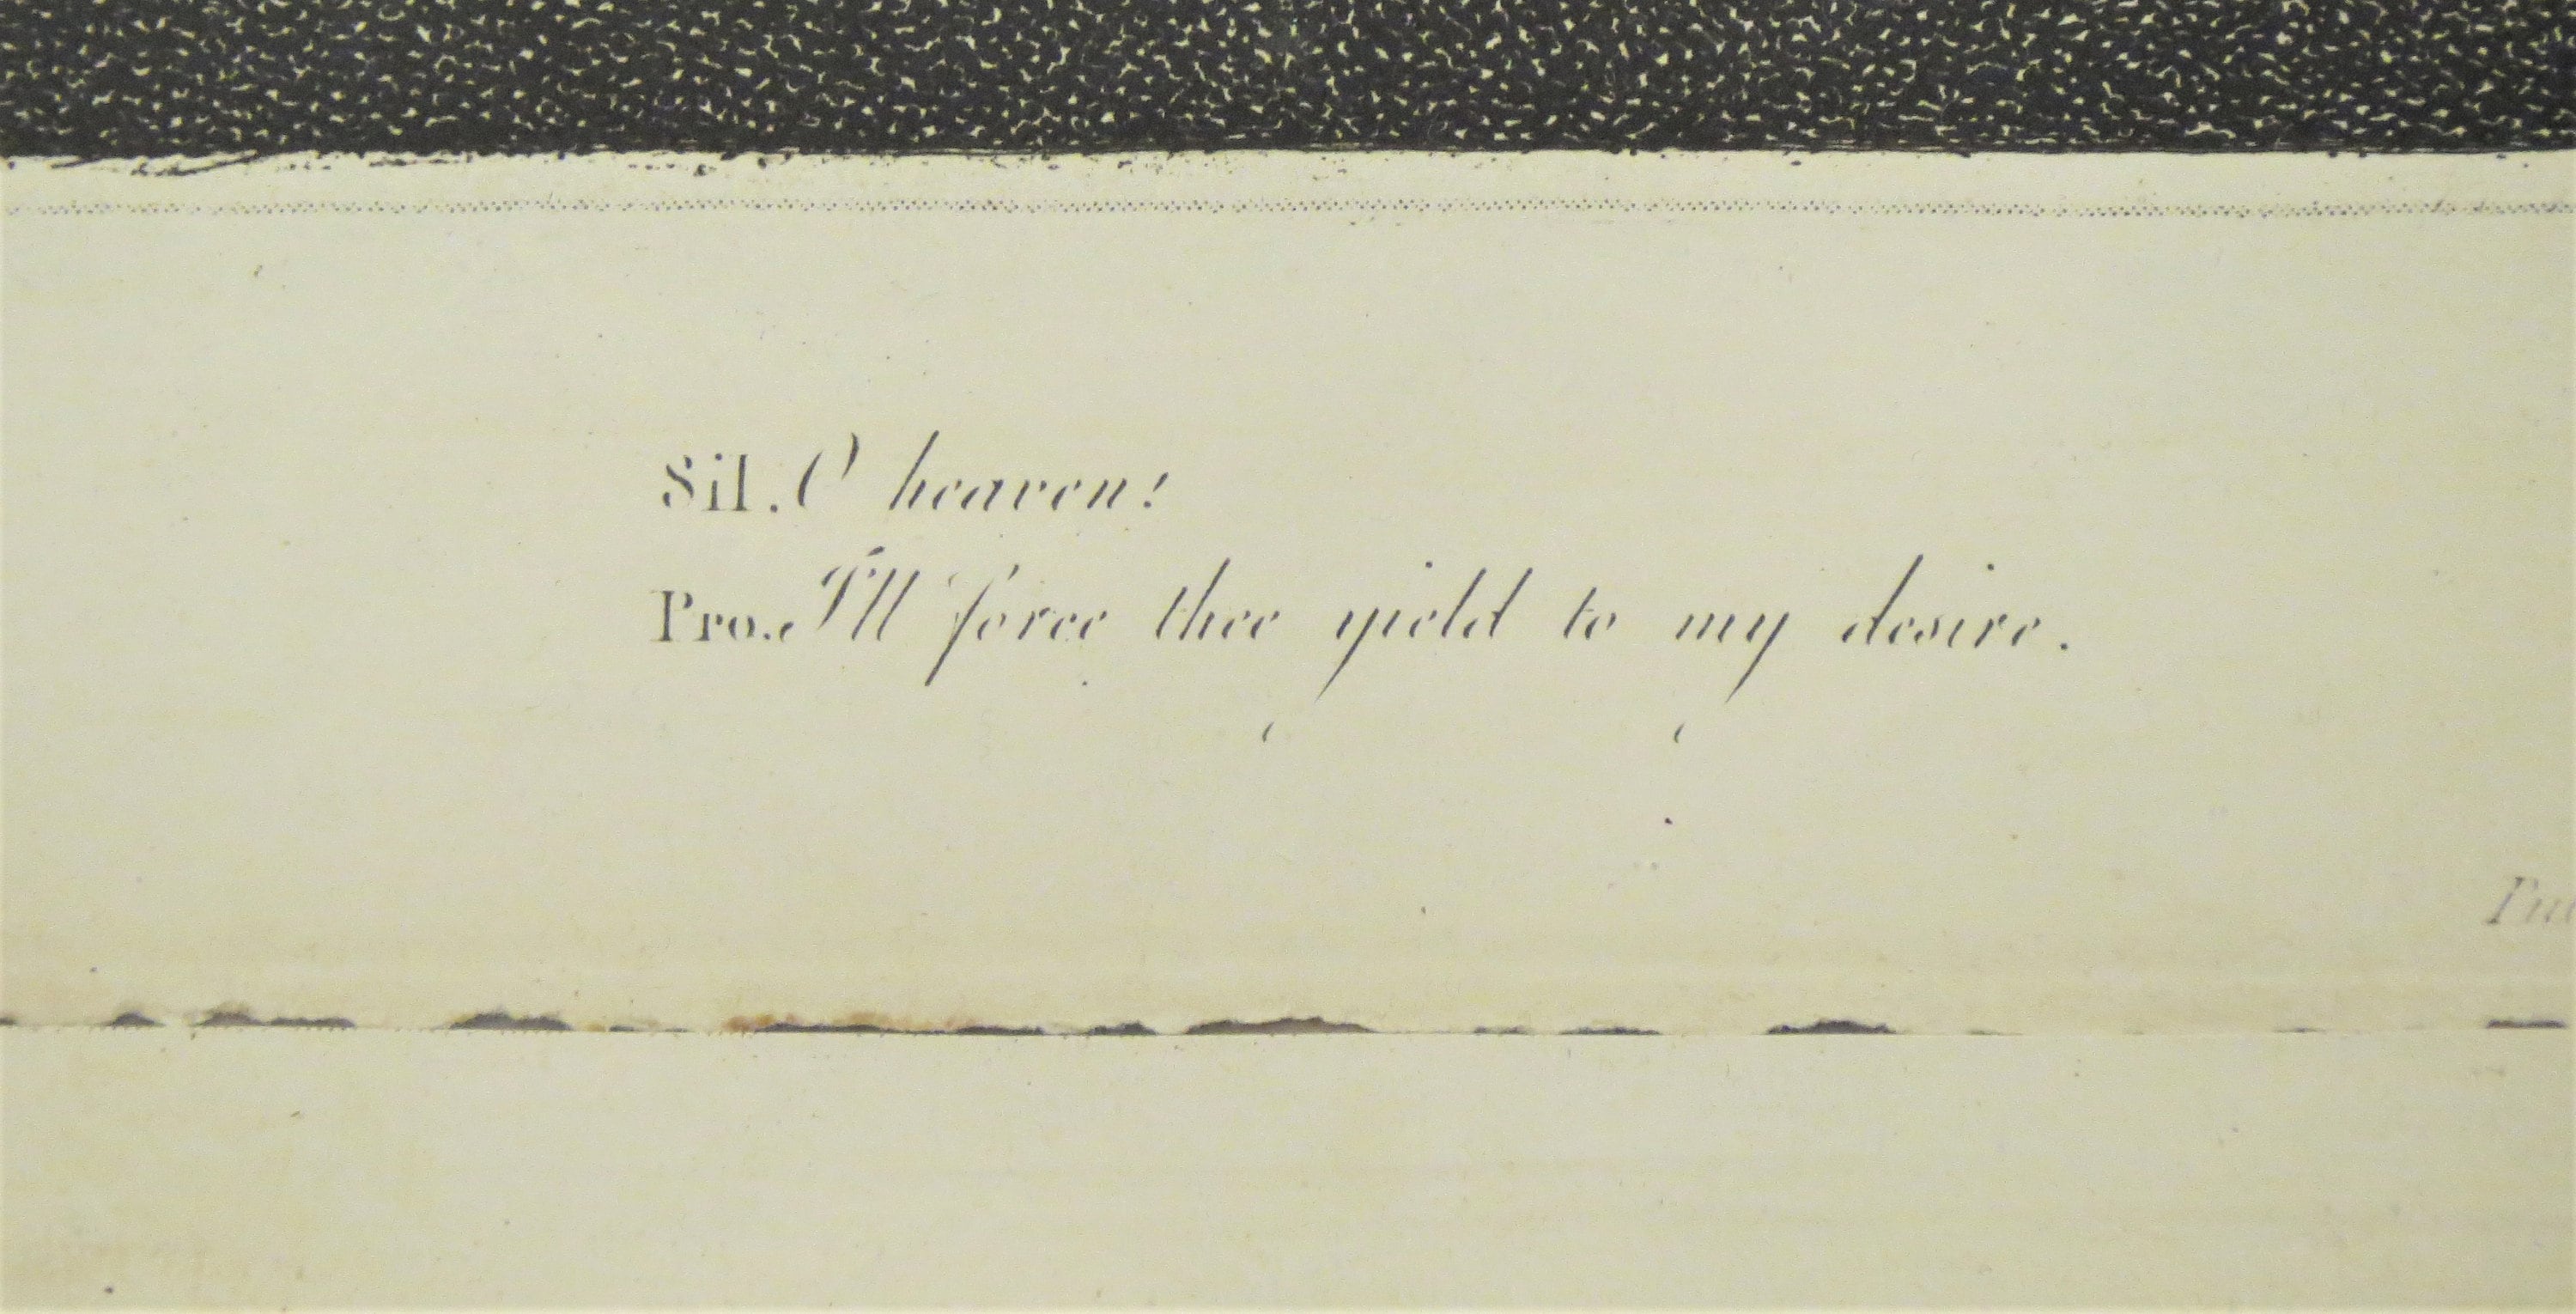 Sil. O heaven!
Pro. I'll force thee yield to my desire.